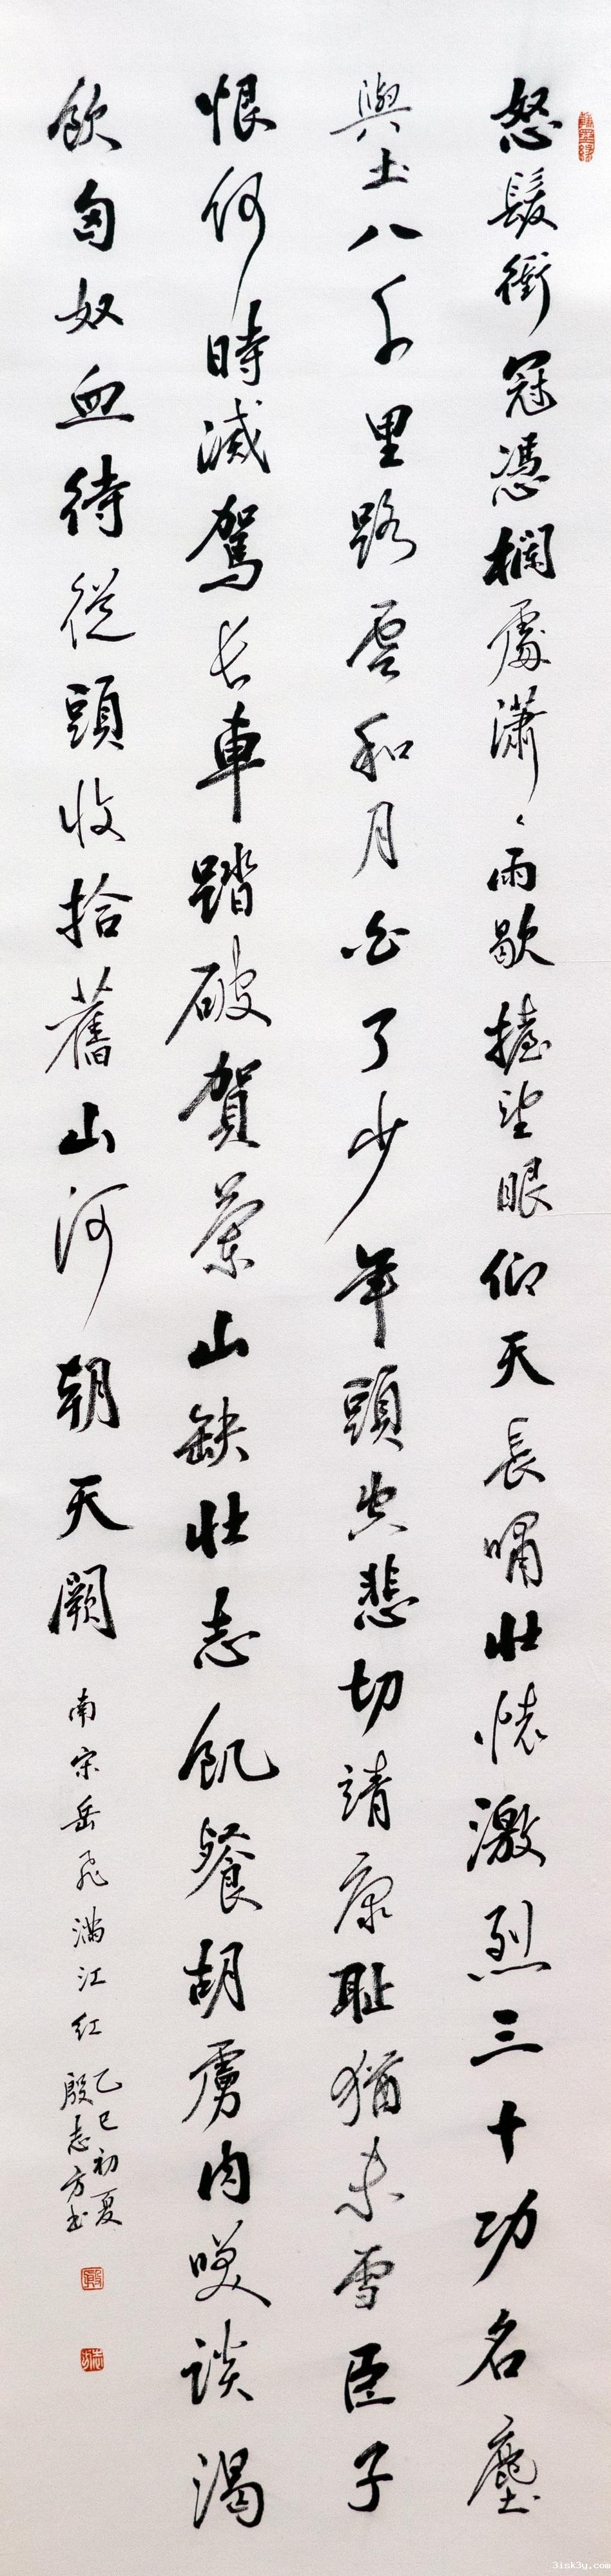 怒髮衝冠憑欄處瀟〻雨歇擡望眼仰天長嘯壯懷激烈三十功名塵
與土八千里路雲和月白了少年頭空悲切靖康耻猶未雪臣子
恨何時滅駕長車踏破賀蘭山缺壯志飢餐胡虜肉咲談渴
飲匈奴血待從頭收拾舊山河朝天闕
南宋岳飛滿江紅
乙巳初夏
殷志方書
3isk3y.com